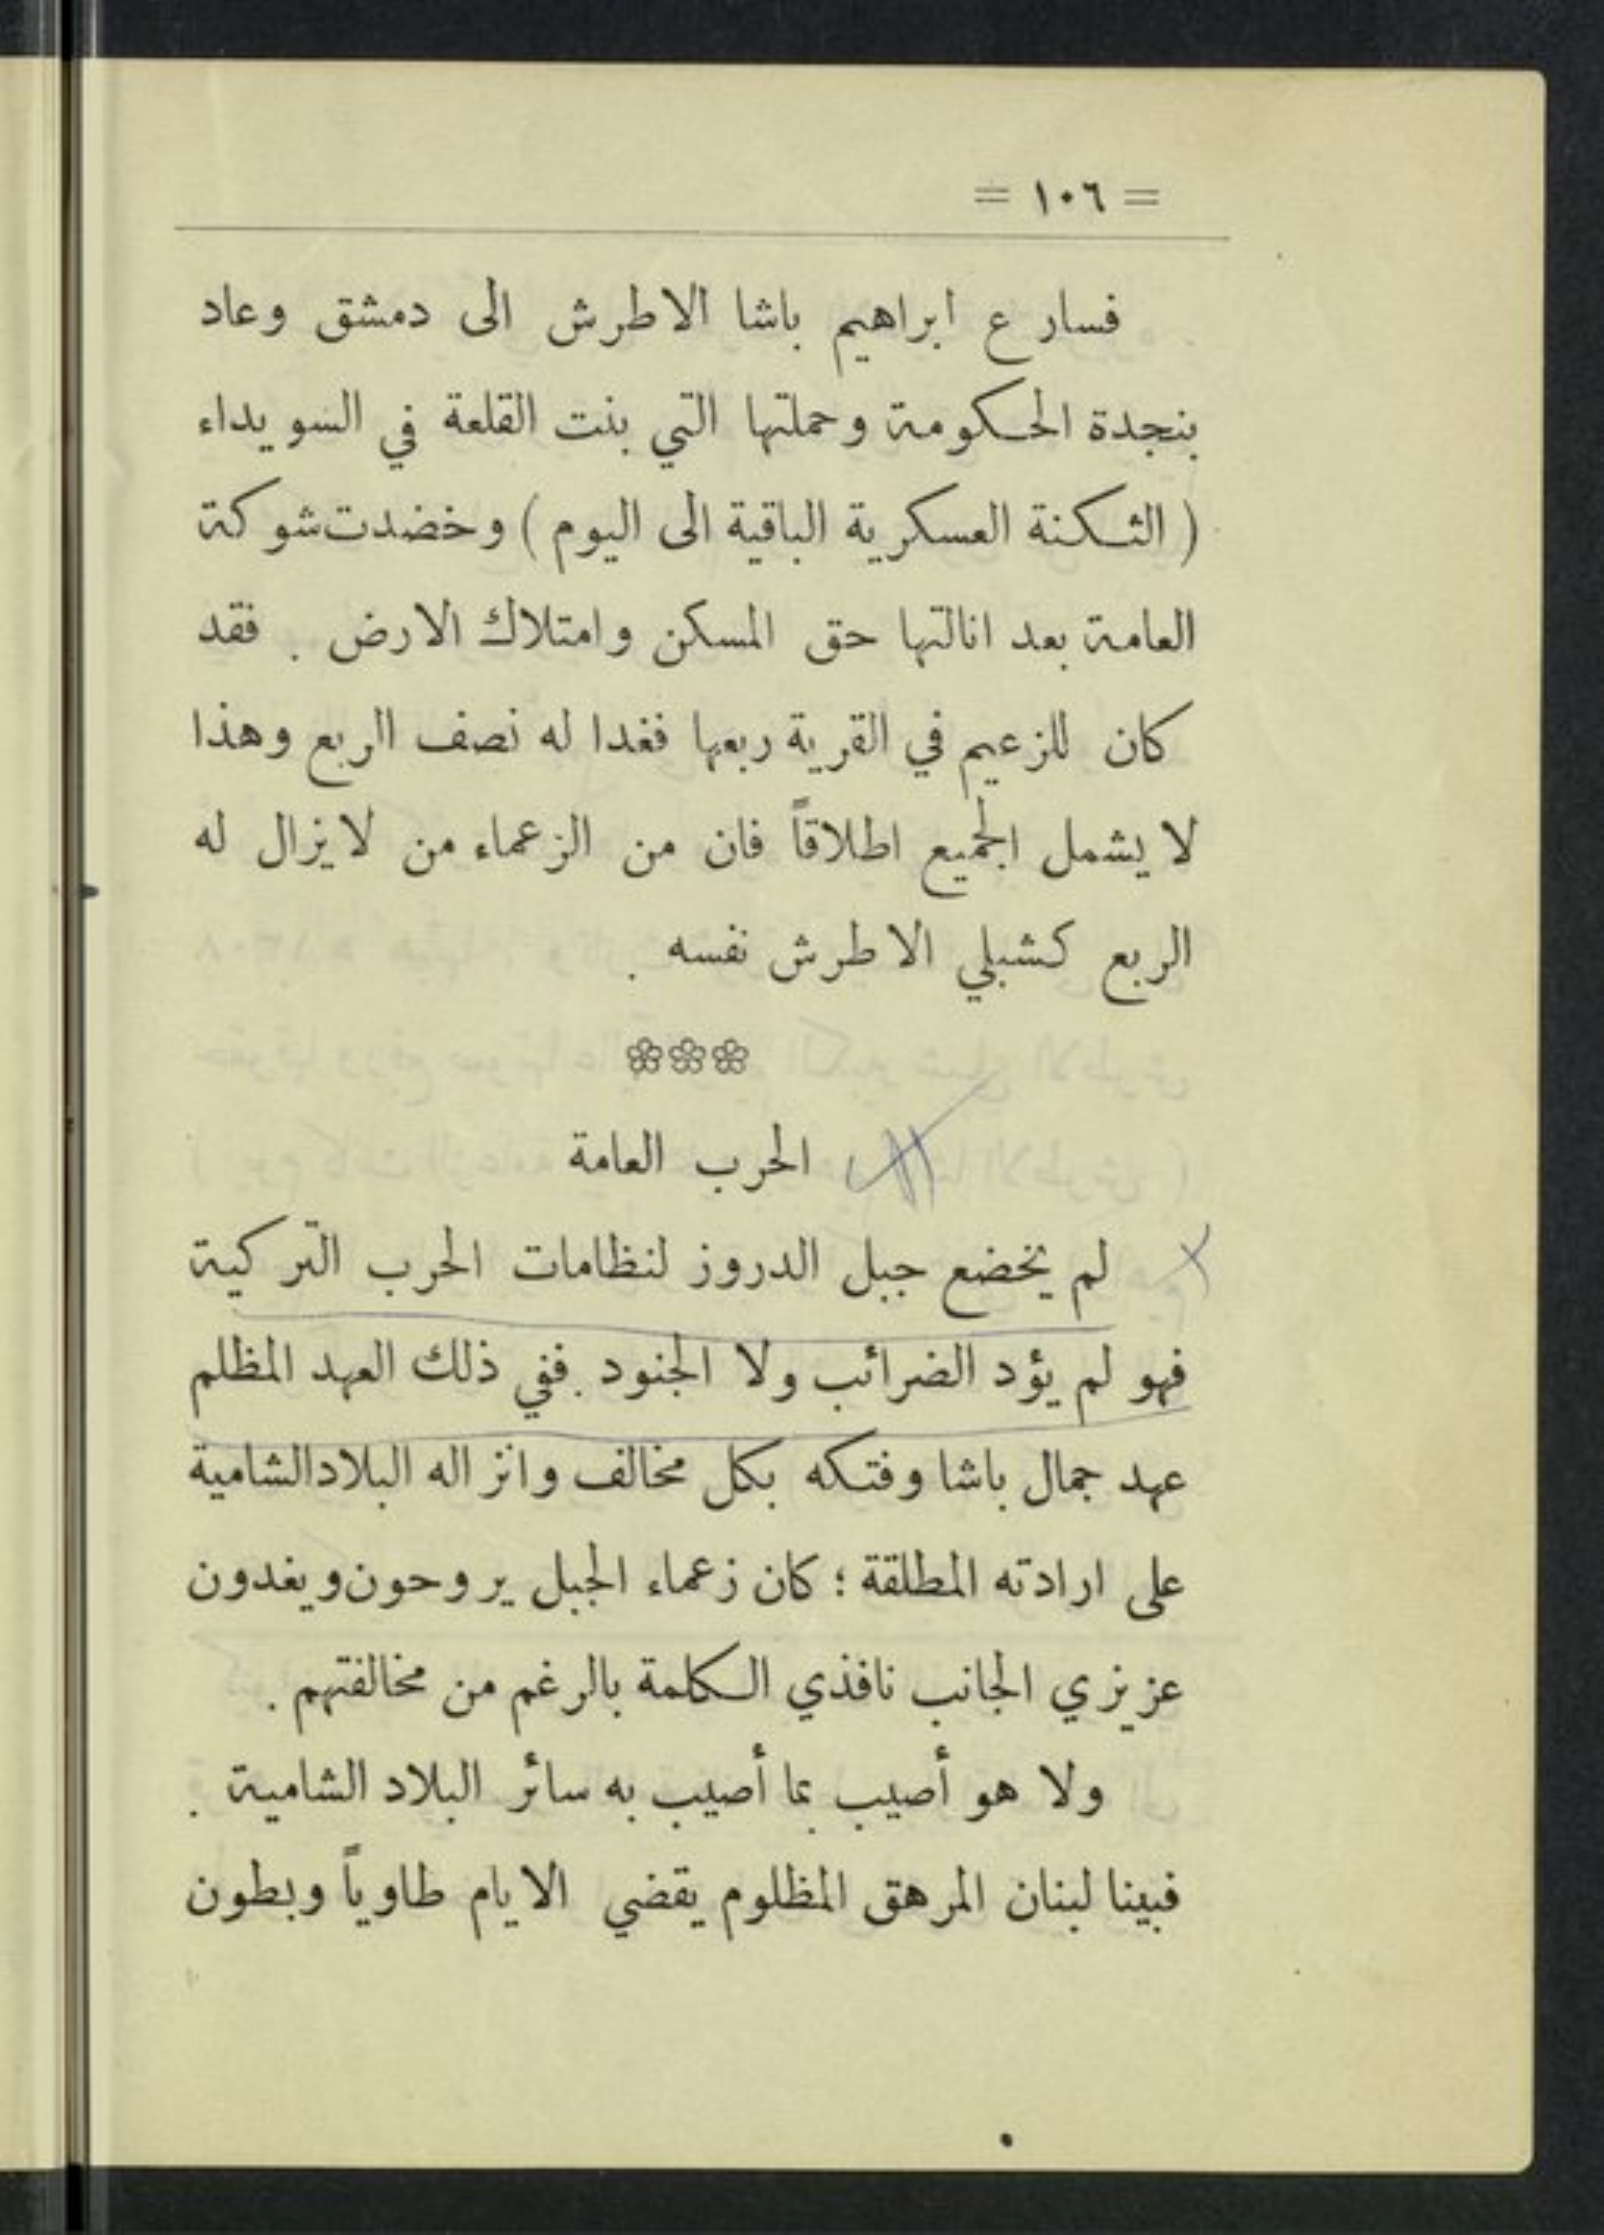 = ١٠٦ =
فسارع ابراهيم باشا الاطرش الى دمشق وعاد
بنجدة الحكومة وحملتها التي بنت القلعة في السويداء
( الثكنة العسكرية الباقية الى اليوم ) وخضدت شوكة
العامة بعد انالتها حق المسكن وامتلاك الارض . فقد
كان للزعيم في القرية ربعها فغدا له نصف الربع وهذا
لا يشمل الجميع اطلاقاً فان من الزعماء من لا يزال له
الربع كشبلي الاطرش نفسه .
الحرب العامة
لم يخضع جبل الدروز لنظامات الحرب التركية
فهو لم يؤد الضرائب ولا الجنود . ففي ذلك العهد المظلم
عهد جمال باشا وفتكه بكل مخالف وانزاله البلاد الشامية
على ارادته المطلقة ؛ كان زعماء الجبل يروحون ويغدون
عزيزي الجانب نافذي الكلمة بالرغم من مخالفتهم .
ولا هو أصيب بما أصيب به سائر البلاد الشامية .
فبينا لبنان المرهق المظلوم يقضي الايام طاوياً وبطون